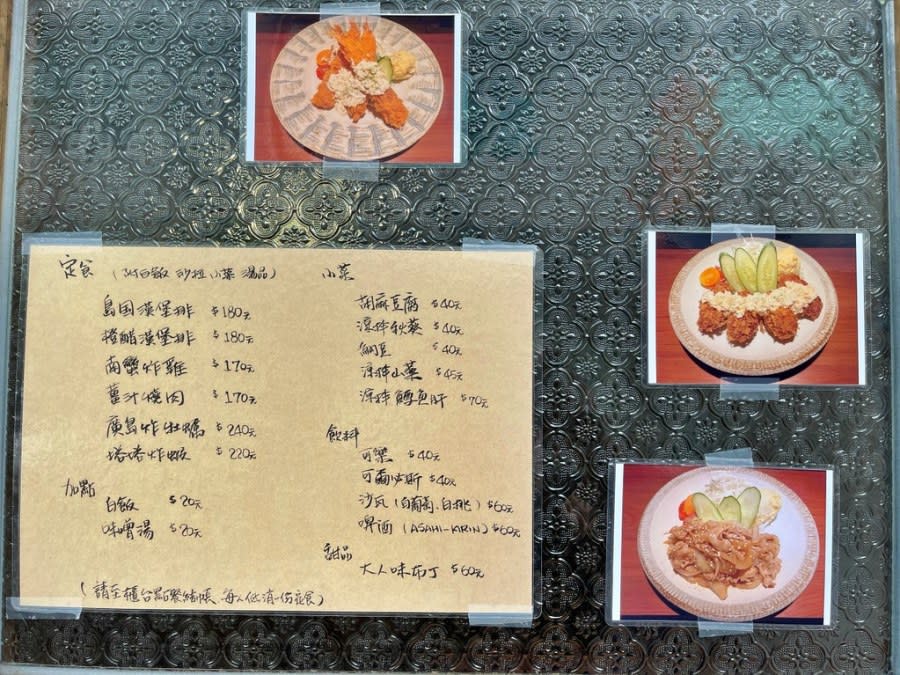 定食 (附白飯 沙拉 小菜 湯品)
島国漢堡排 $180元
橙醋漢堡排 $180元
南蠻炸雞 $170元
薑汁燒肉 $170元
廣島炸牡蠣 $240元
塔塔炸蝦 $220元
加點
白飯 $20元
味噌湯 $20元
小菜
胡麻豆腐 $40元
涼拌秋葵 $40元
納豆 $40元
涼拌山菜 $45元
涼拌鱈魚肝 $70元
飲料
可樂 $40元
可爾必斯 $40元
沙瓦 (白葡萄、白桃) $60元
啤酒 (ASAHI-KIRIN) $60元
甜品
大人味布丁 $60元
(請至櫃台點餐結帳、每人低消一份定食)